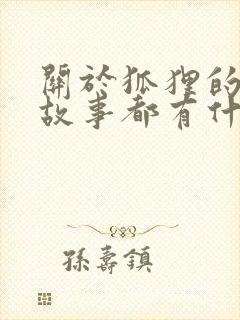 關於狐狸的
故事都有什
孫壽鎮